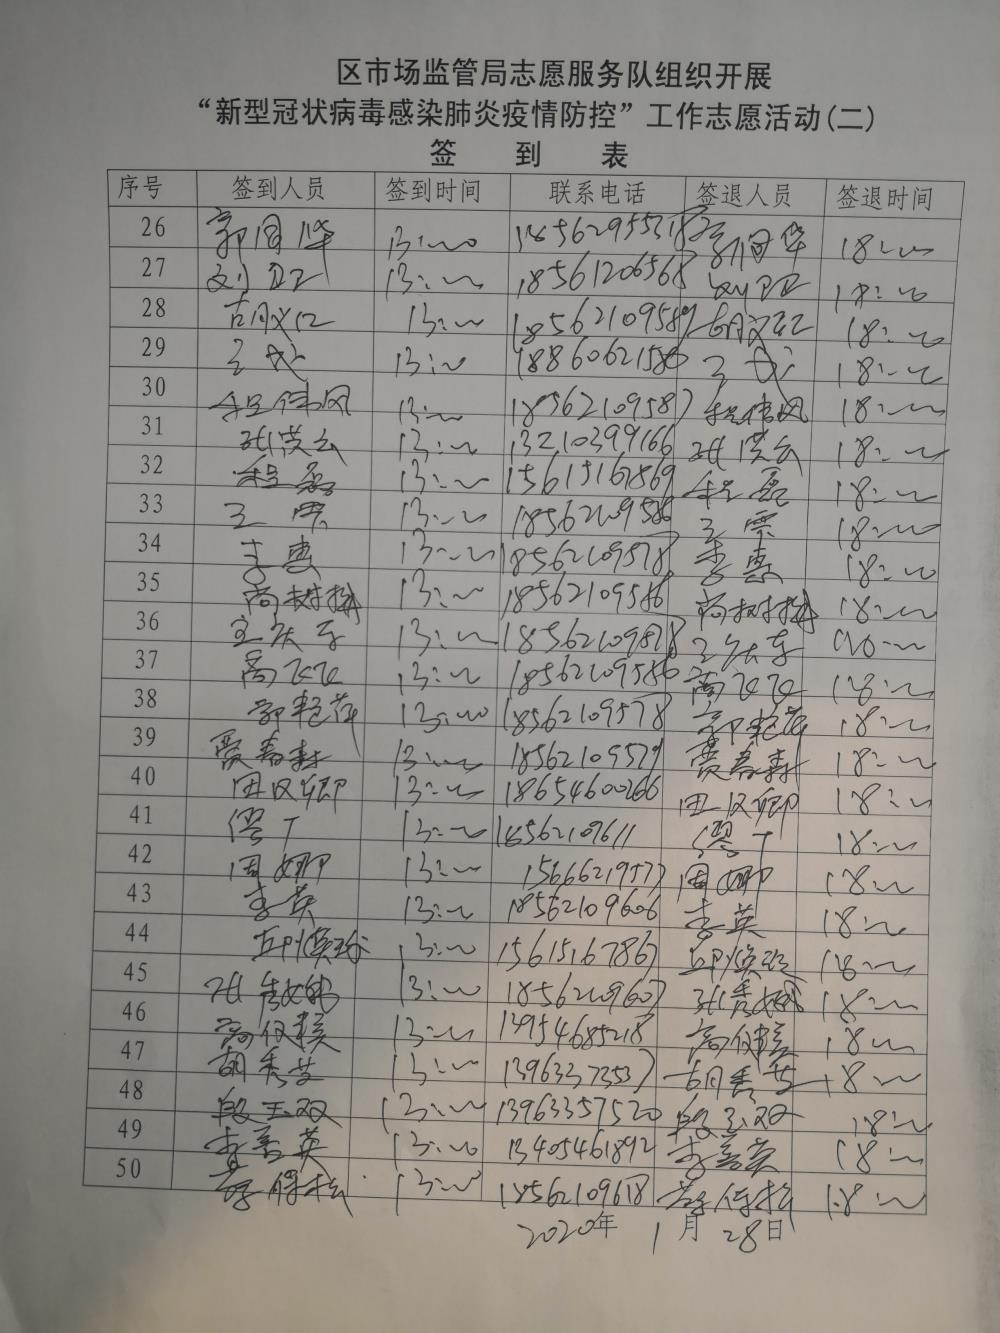 区市场监管局志愿服务队组织开展
“新型冠状病毒感染肺炎疫情防控”工作志愿活动(二)
签 到 表
序号 签到人员 签到时间 联系电话 签退人员 签退时间
26 13:00 18:00
27 13:00 18561206568 18:00
28 胡义江 13:00 18562109589 胡义江 18:00
29 13:00 18860621586 18:00
30 程伟风 13:00 18562109587 程伟风 18:00
31 张洪云 13:00 13210399166 张洪云 18:00
32 程磊 13:00 15615161869 程磊 18:00
33 13:00 18562109586 18:00
34 李惠 13:00 18562109578 李惠 18:00
35 13:00 18562109586 18:00
36 王庆东 13:00 王庆东
37 高飞飞 13:00 18562109586 高飞飞 18:00
38 郭艳萍 13:00 18562109578 郭艳萍 18:00
39 贾春森 13:00 18562109579 贾春森 18:00
40 田汉卿 13:00 18654600266 田汉卿 18:00
41 13:00 18562109611 18:00
42 周娜 13:00 周娜 18:00
43 李英 13:00 18562109606 李英 18:00
44 13:00 15615167867 18:00
45 13:00 18562109607 18:00
46 13:00 18:00
47 胡秀芝 13:00 胡秀芝 18:00
48 段玉双 13:00 13963357520 段玉双 18:00
49 李善英 13:00 13405461892 李善英 18:00
50 13:00 18562109618 18:00
2020年 1月 28日